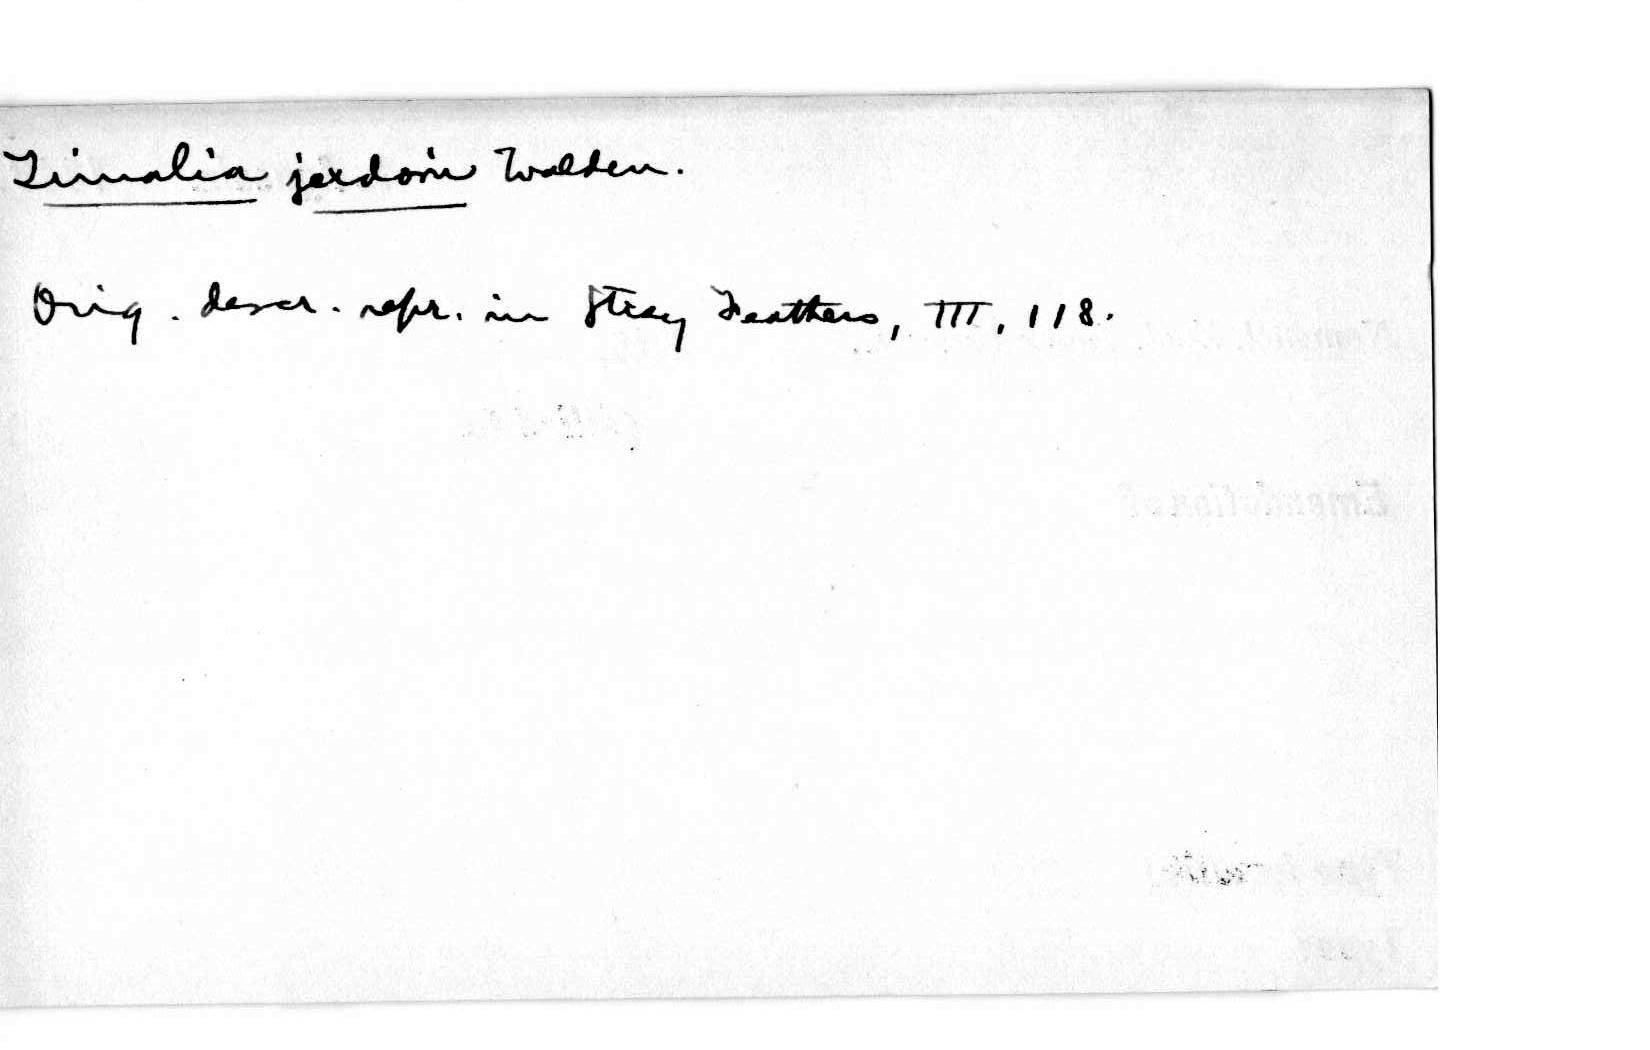 Timalia jerdoni Walden.
Orig. descr. repr. in Stray Feathers, III, 118.